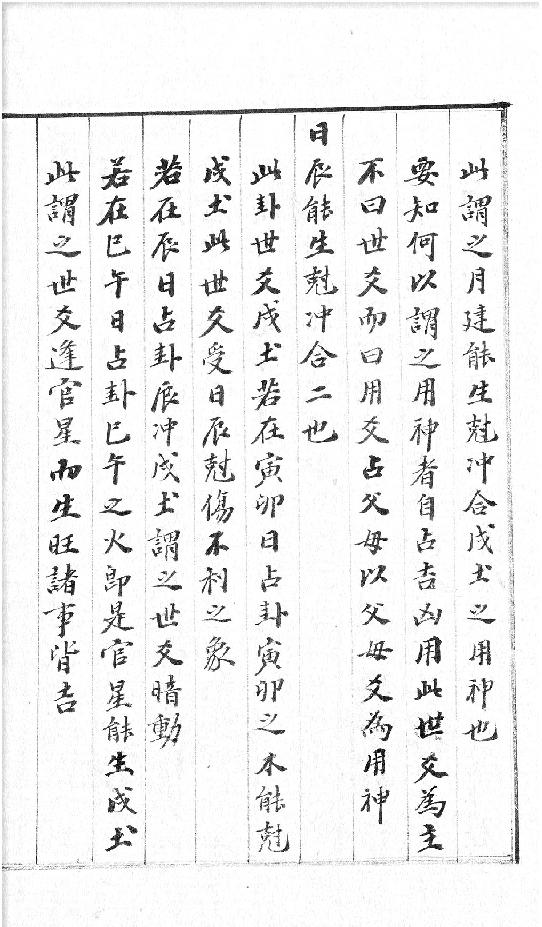 此謂之月建能生尅冲合戌土之用神也
要知何以謂之用神者自占吉凶用此世爻為主
不曰世爻而曰用爻占父母以父母爻為用神
日辰能生尅冲合二也
此卦世爻戌土若在寅卯日占卦寅卯之木能尅
戌土此世爻受日辰尅傷不利之象
若在辰日占卦辰冲戌土謂之世爻暗動
若在巳午日占卦巳午之火即是官星能生戌土
此謂之世爻逢官星而生旺諸事皆吉